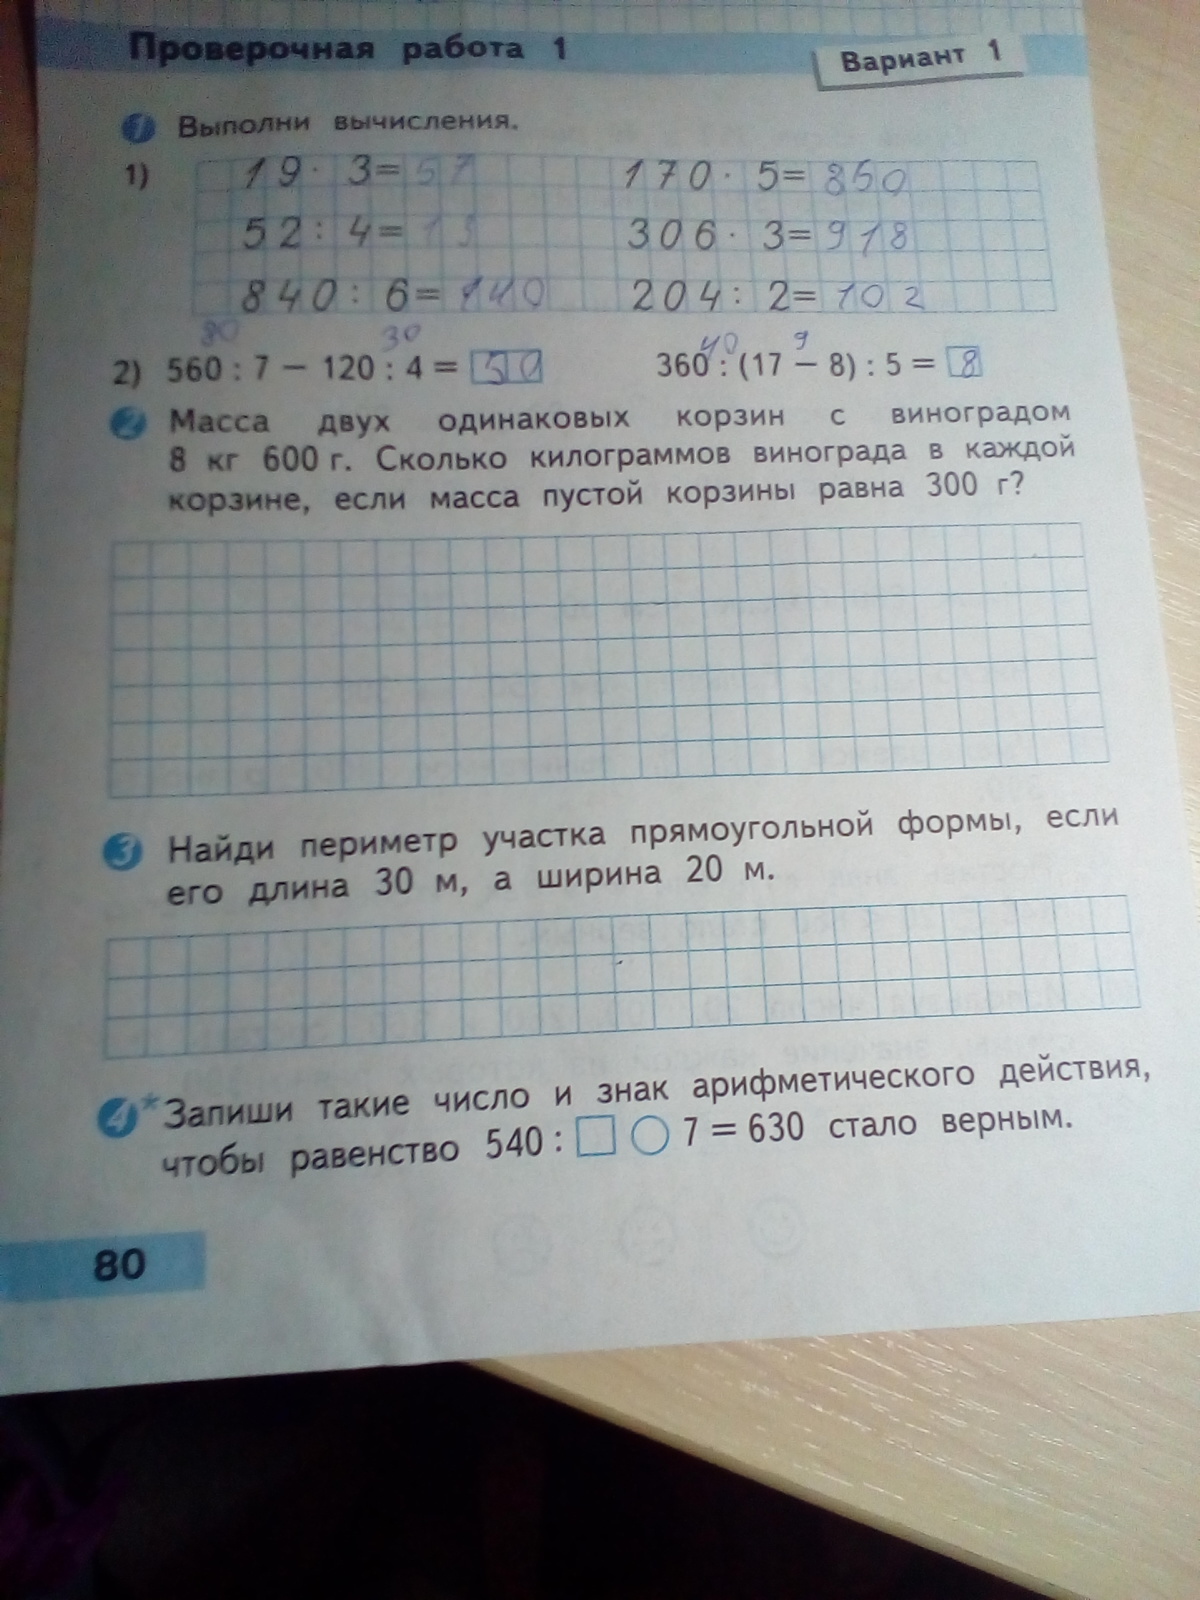 Проверочная работа 1
Вариант 1
1 Выполни вычисления.
1) 19 · 3 = 57 170 · 5 = 850
52 : 4 = 13 306 · 3 = 918
840 : 6 = 140 204 : 2 = 102
80 30 40 9
2) 560 : 7 − 120 : 4 = 50 360 : (17 − 8) : 5 = 8
2 Масса двух одинаковых корзин с виноградом
8 кг 600 г. Сколько килограммов винограда в каждой
корзине, если масса пустой корзины равна 300 г?
3 Найди периметр участка прямоугольной формы, если
его длина 30 м, а ширина 20 м.
4* Запиши такие число и знак арифметического действия,
чтобы равенство 540 : □ ○ 7 = 630 стало верным.
80